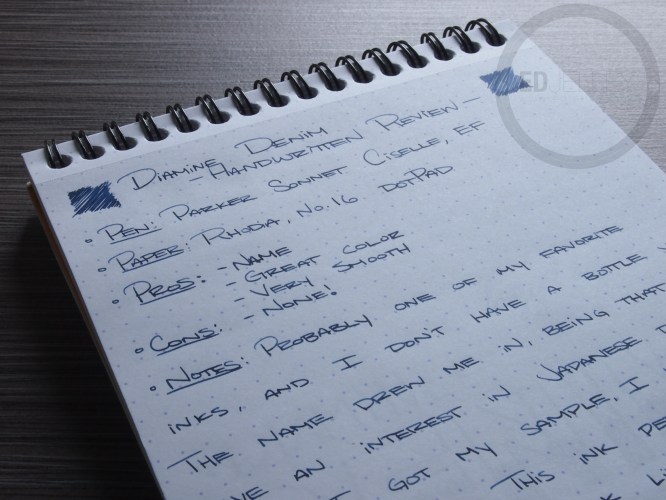 DIAMINE DENIM
- HANDWRITTEN REVIEW -
• PEN: PARKER SONNET CISELLE, EF
• PAPER: RHODIA, NO. 16 DOTPAD
• PROS: - NAME
- GREAT COLOR
- VERY SMOOTH
• CONS: - NONE!
• NOTES: PROBABLY ONE OF MY FAVORITE
INKS, AND I DON'T HAVE A BOTTLE
THE NAME DREW ME IN, BEING THAT
AN INTEREST IN JAPANESE
GOT MY SAMPLE, I
THIS INK
ED